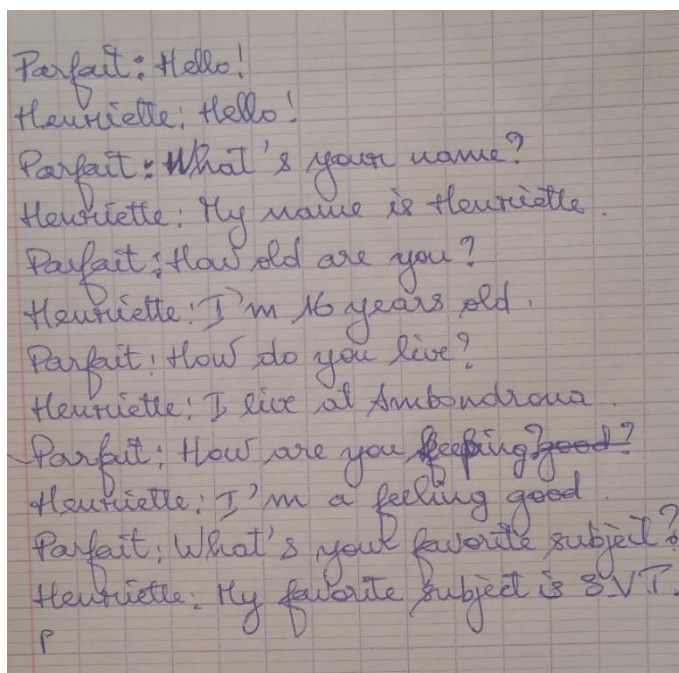 Parfait: Hello!
Henriette: Hello!
Parfait: What's your name?
Henriette: My name is Henriette.
Parfait: How old are you?
Henriette: I'm 16 years old.
Parfait: How do you live?
Henriette: I live at Ambondrona.
Parfait: How are you feeping? good?
Henriette: I'm a feeling good.
Parfait: What's your favorite subject?
Henriette: My favorite subject is SVT.
P